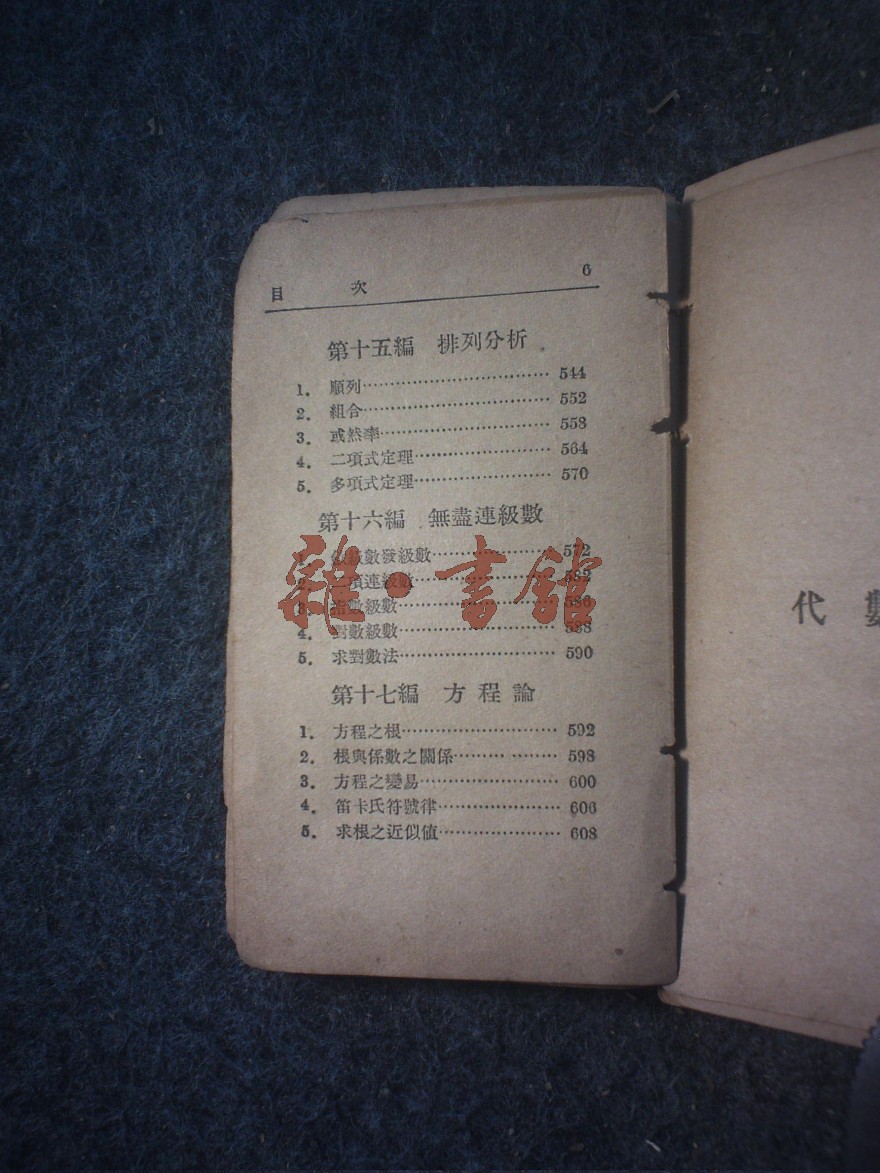 目 次 6
第十五編 排列分析
1. 順列 544
2. 組合 552
3. 或然率 558
4. 二項式定理 564
5. 多項式定理 570
第十六編 無盡連級數
級數發級數 572
二項連級數 582
3. 指數級數 586
4. 對數級數 588
5. 求對數法 590
第十七編 方程論
1. 方程之根 592
2. 根與係數之關係 598
3. 方程之變易 600
4. 笛卡氏符號律 606
5. 求根之近似值 608
雜·書館
代數